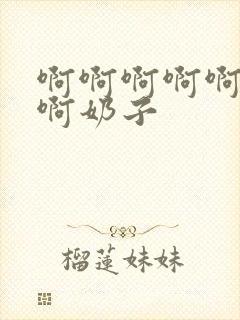 啊啊啊啊啊
啊奶子
榴莲妹妹